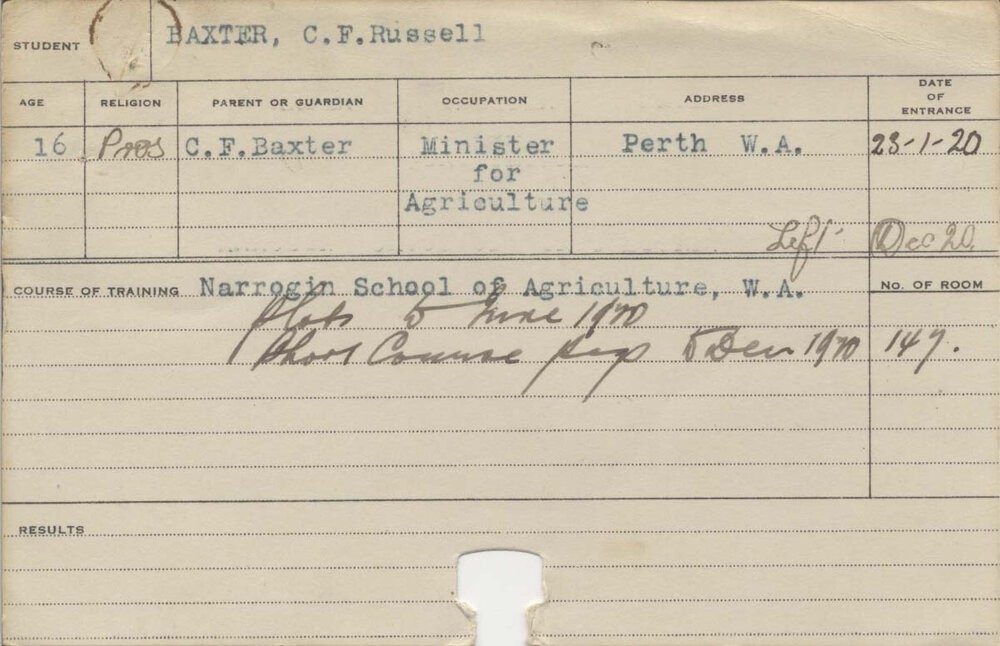 STUDENT BAXTER, C.F.Russell
AGE RELIGION PARENT OR GUARDIAN OCCUPATION ADDRESS DATE OF ENTRANCE
16 Pres C.F.Baxter Minister Perth W.A. 23-1-20
for
Agriculture
Left Dec 20
COURSE OF TRAINING Narrogin School of Agriculture, W.A. No. OF ROOM
to June 1920
Short Course to Dec 1920 147.
RESULTS